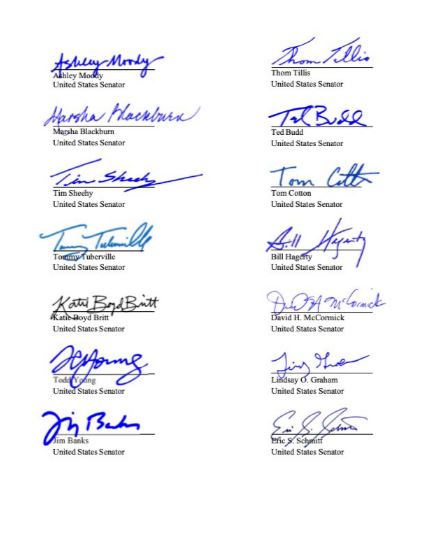 Ashley Moody
Ashley Moody
United States Senator
Thom Tillis
Thom Tillis
United States Senator
Marsha Blackburn
Masha Blackburn
United States Senator
Ted Budd
Ted Budd
United States Senator
Tim Sheehy
Tim Sheehy
United States Senator
Tom Cotton
Tom Cotton
United States Senator
Tommy Tuberville
Tommy Tuberville
United States Senator
Bill Hagerty
Bill Hagerty
United States Senator
Katie Boyd Britt
Katie Boyd Britt
United States Senator
David H. McCormick
United States Senator
Todd Young
United States Senator
Lindsay O. Graham
United States Senator
Jim Banks
Jim Banks
United States Senator
Eric S. Schmitt
United States Senator